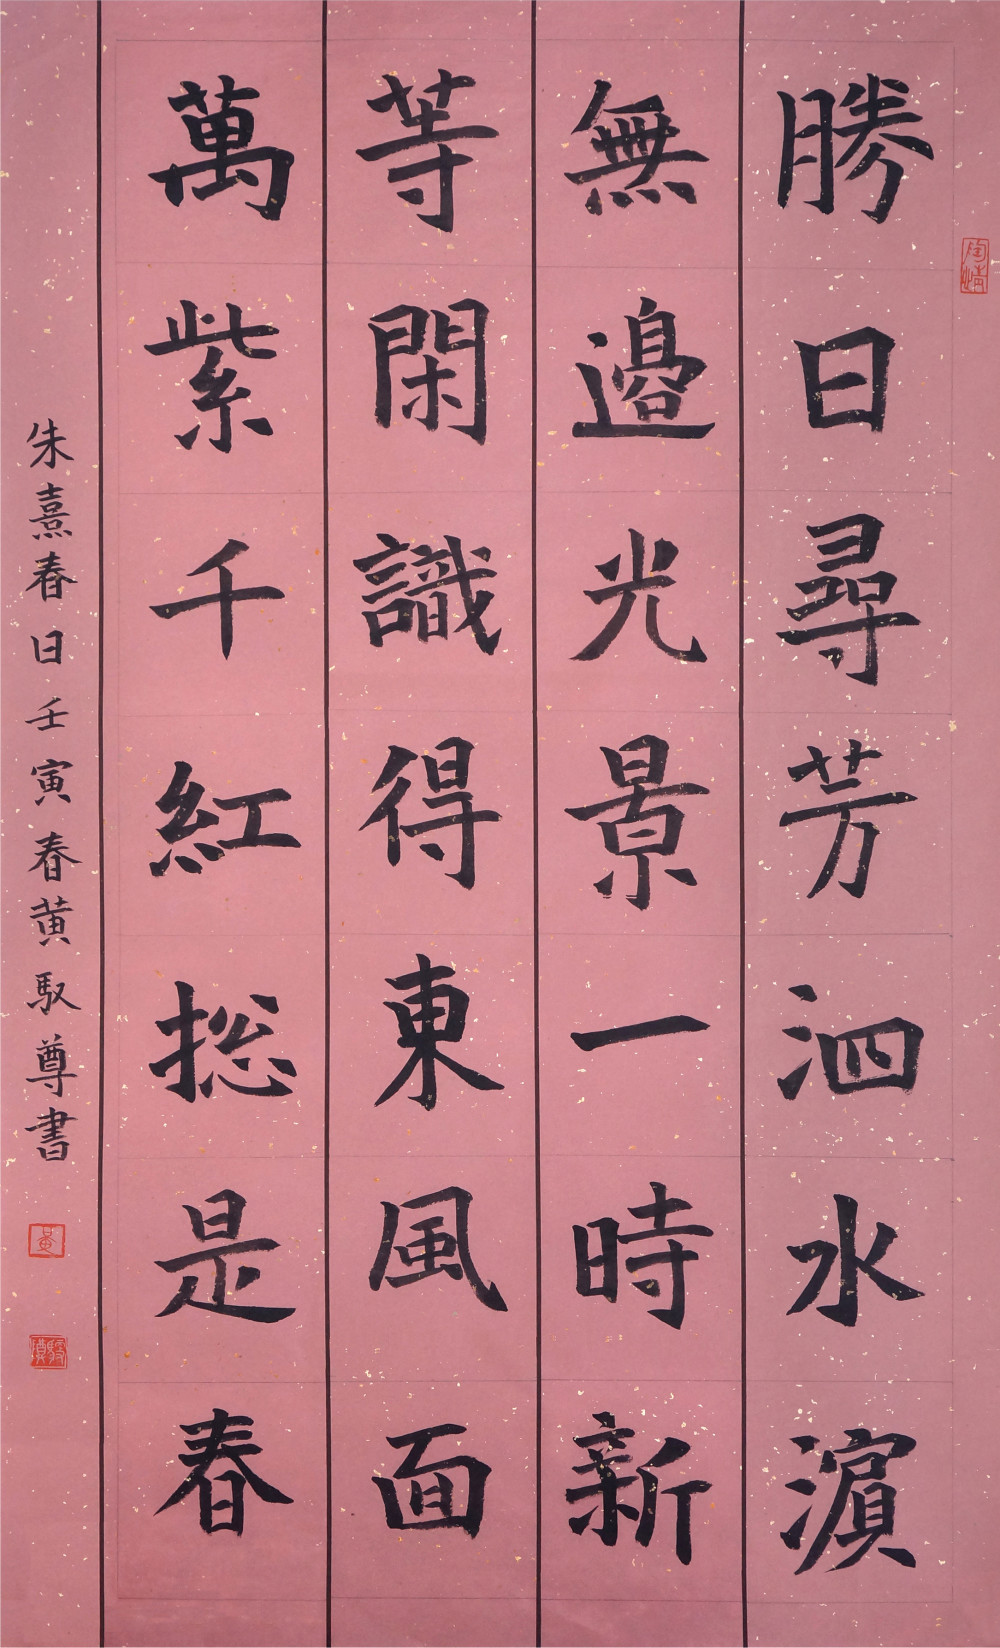 勝日尋芳泗水濵
無邊光景一時新
等閑識得東風面
萬紫千紅捴是春
朱熹春日壬寅春黄馭尊書
陶情